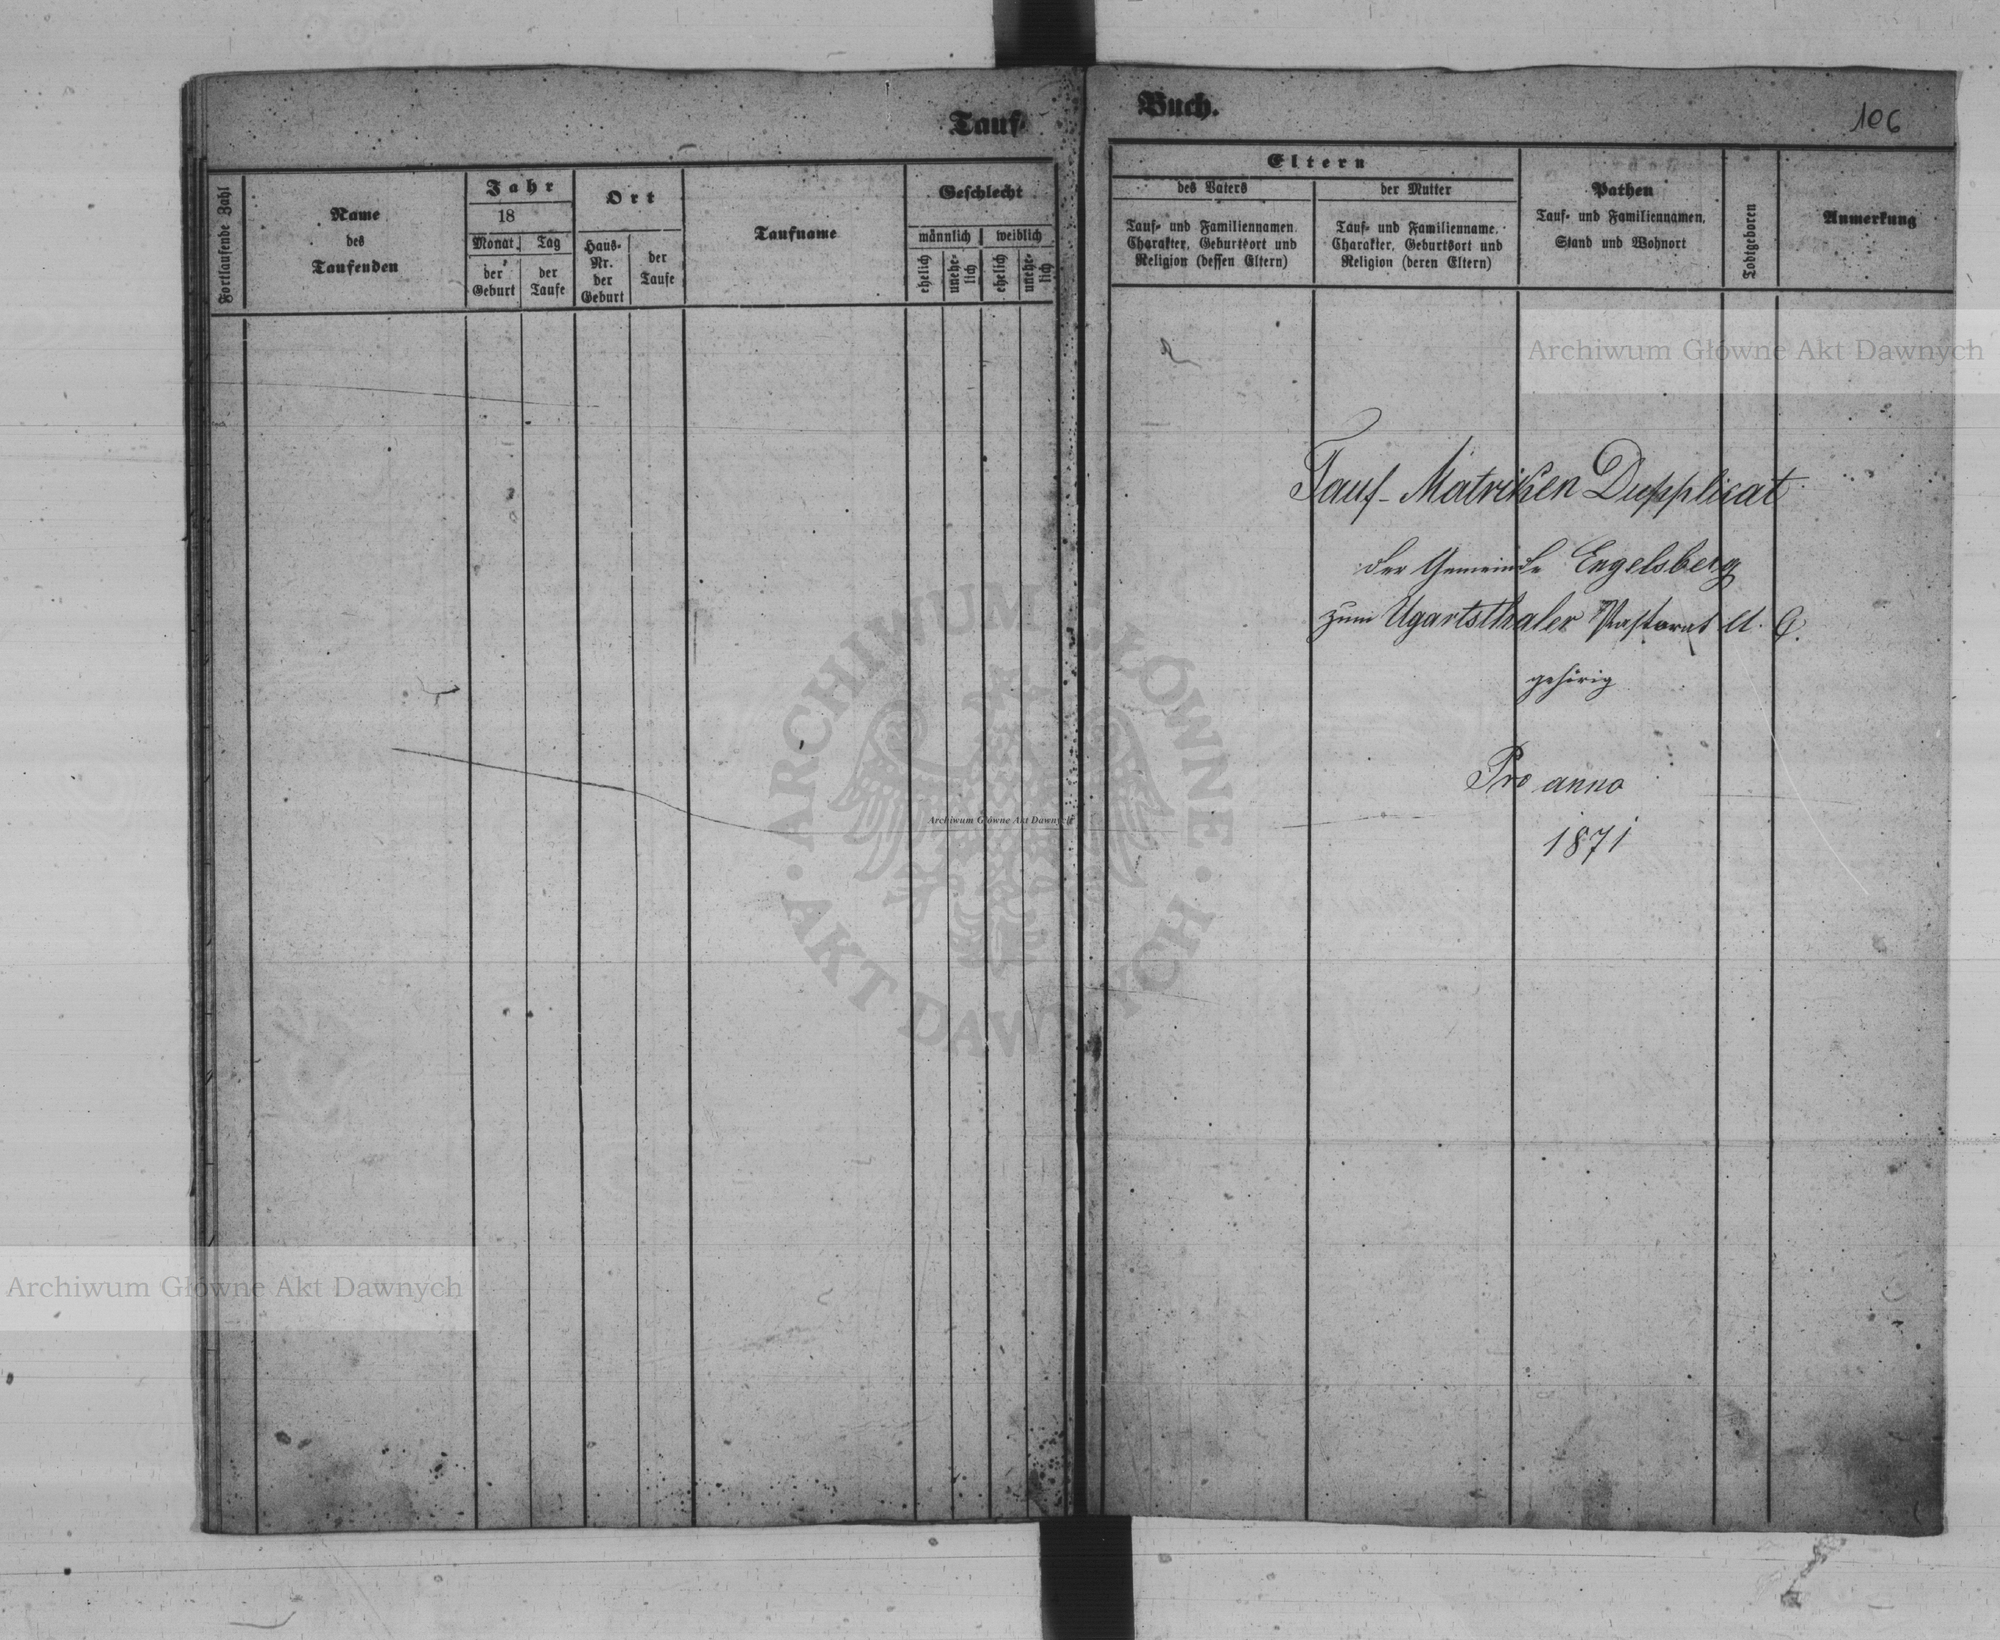 Tauf-
Buch.
106
Fortlaufende Zahl
Name
des
Taufenden
Jahr
18
Monat
Tag
der
Geburt
der
Taufe
Ort
Haus-
Nr.
der
Geburt
der
Taufe
Taufname
Geschlecht
männlich
weiblich
ehelich
unehe-
lich
ehelich
unehe-
lich
Eltern
des Vaters
der Mutter
Tauf- und Familiennamen.
Charakter, Geburtsort und
Religion (dessen Eltern)
Tauf- und Familienname.
Charakter, Geburtsort und
Religion (deren Eltern)
Pathen
Tauf- und Familiennamen,
Stand und Wohnort
Todtgeboren
Anmerkung
Tauf-Matriken Dupplicat
der Gemeinde Engelsberg
zum Ugartsthaler Pastorat A. C.
gehörig
Pro anno
1871
Archiwum Główne Akt Dawnych
ARCHIWUM GŁÓWNE
AKT DAWNYCH
Archiwum Główne Akt Dawnych
Archiwum Główne Akt Dawnych